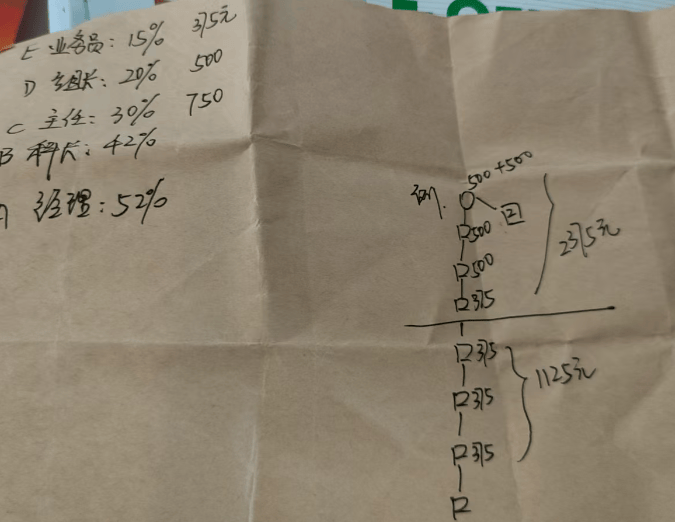 E 业务员：15% 375元
D 组长：20% 500
C 主任：30% 750
B 科长：42%
A 经理：52%
500+500
例.
2
500
500
2375元
375
375
375
1125元
375